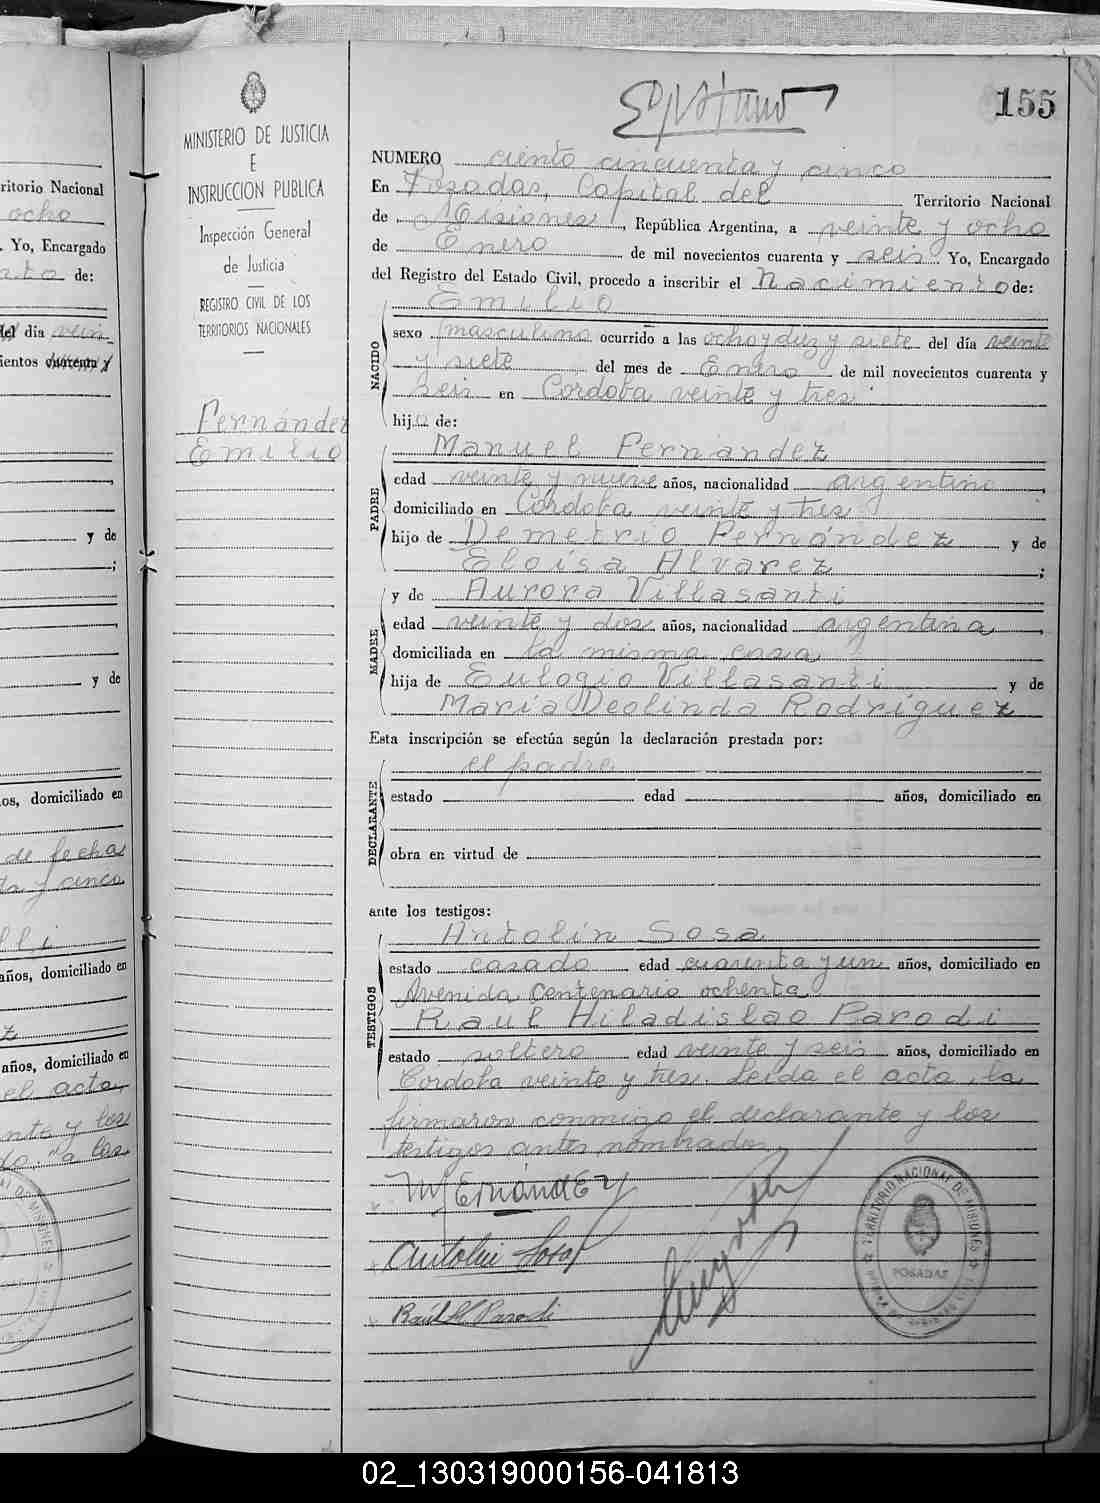 ritorio Nacional
ocho
. Yo, Encargado
de:
del día vein
ientos cuarenta y
y de
;
y de
os, domiciliado en
de fecha
ta y cinco
lli
años, domiciliado en
z
años, domiciliado en
el acta,
nto y los
a los
MINISTERIO DE JUSTICIA
E
INSTRUCCION PUBLICA
Inspección General
de Justicia
REGISTRO CIVIL DE LOS
TERRITORIOS NACIONALES
Fernández
Emilio
155
NUMERO ciento cincuenta y cinco
En Posadas, Capital del Territorio Nacional
de Misiones, República Argentina, a veinte y ocho
de Enero de mil novecientos cuarenta y seis. Yo, Encargado
del Registro del Estado Civil, procedo a inscribir el Nacimiento de:
Emilio
NACIDO
sexo masculino ocurrido a las ocho y diez y siete del día veinte
y siete del mes de Enero de mil novecientos cuarenta y
seis en Cordoba veinte y tres
hijo de:
Manuel Fernández
PADRE
edad veinte y nueve años, nacionalidad argentino,
domiciliado en Córdoba veinte y tres
hijo de Demetrio Fernández y de
Eloísa Alvarez;
y de Aurora Villasanti
MADRE
edad veinte y dos años, nacionalidad argentina,
domiciliada en la misma casa
hija de Eulogio Villasanti y de
María Deolinda Rodríguez
Esta inscripción se efectúa según la declaración prestada por:
el padre
DECLARANTE
estado edad años, domiciliado en
obra en virtud de
ante los testigos:
Antolín Sosa
TESTIGOS
estado casado edad cuarenta y un años, domiciliado en
Avenida Centenario ochenta
Raúl Hiladislao Parodi
estado soltero edad veinte y seis años, domiciliado en
Cordoba veinte y tres. Leída el acta, la
firmaron conmigo el declarante y los
testigos antes nombrados
M Fernández
Antolin Sosa
Raúl H. Parodi
TERRITORIO NACIONAL DE MISIONES
POSADAS
02_130319000156-041813